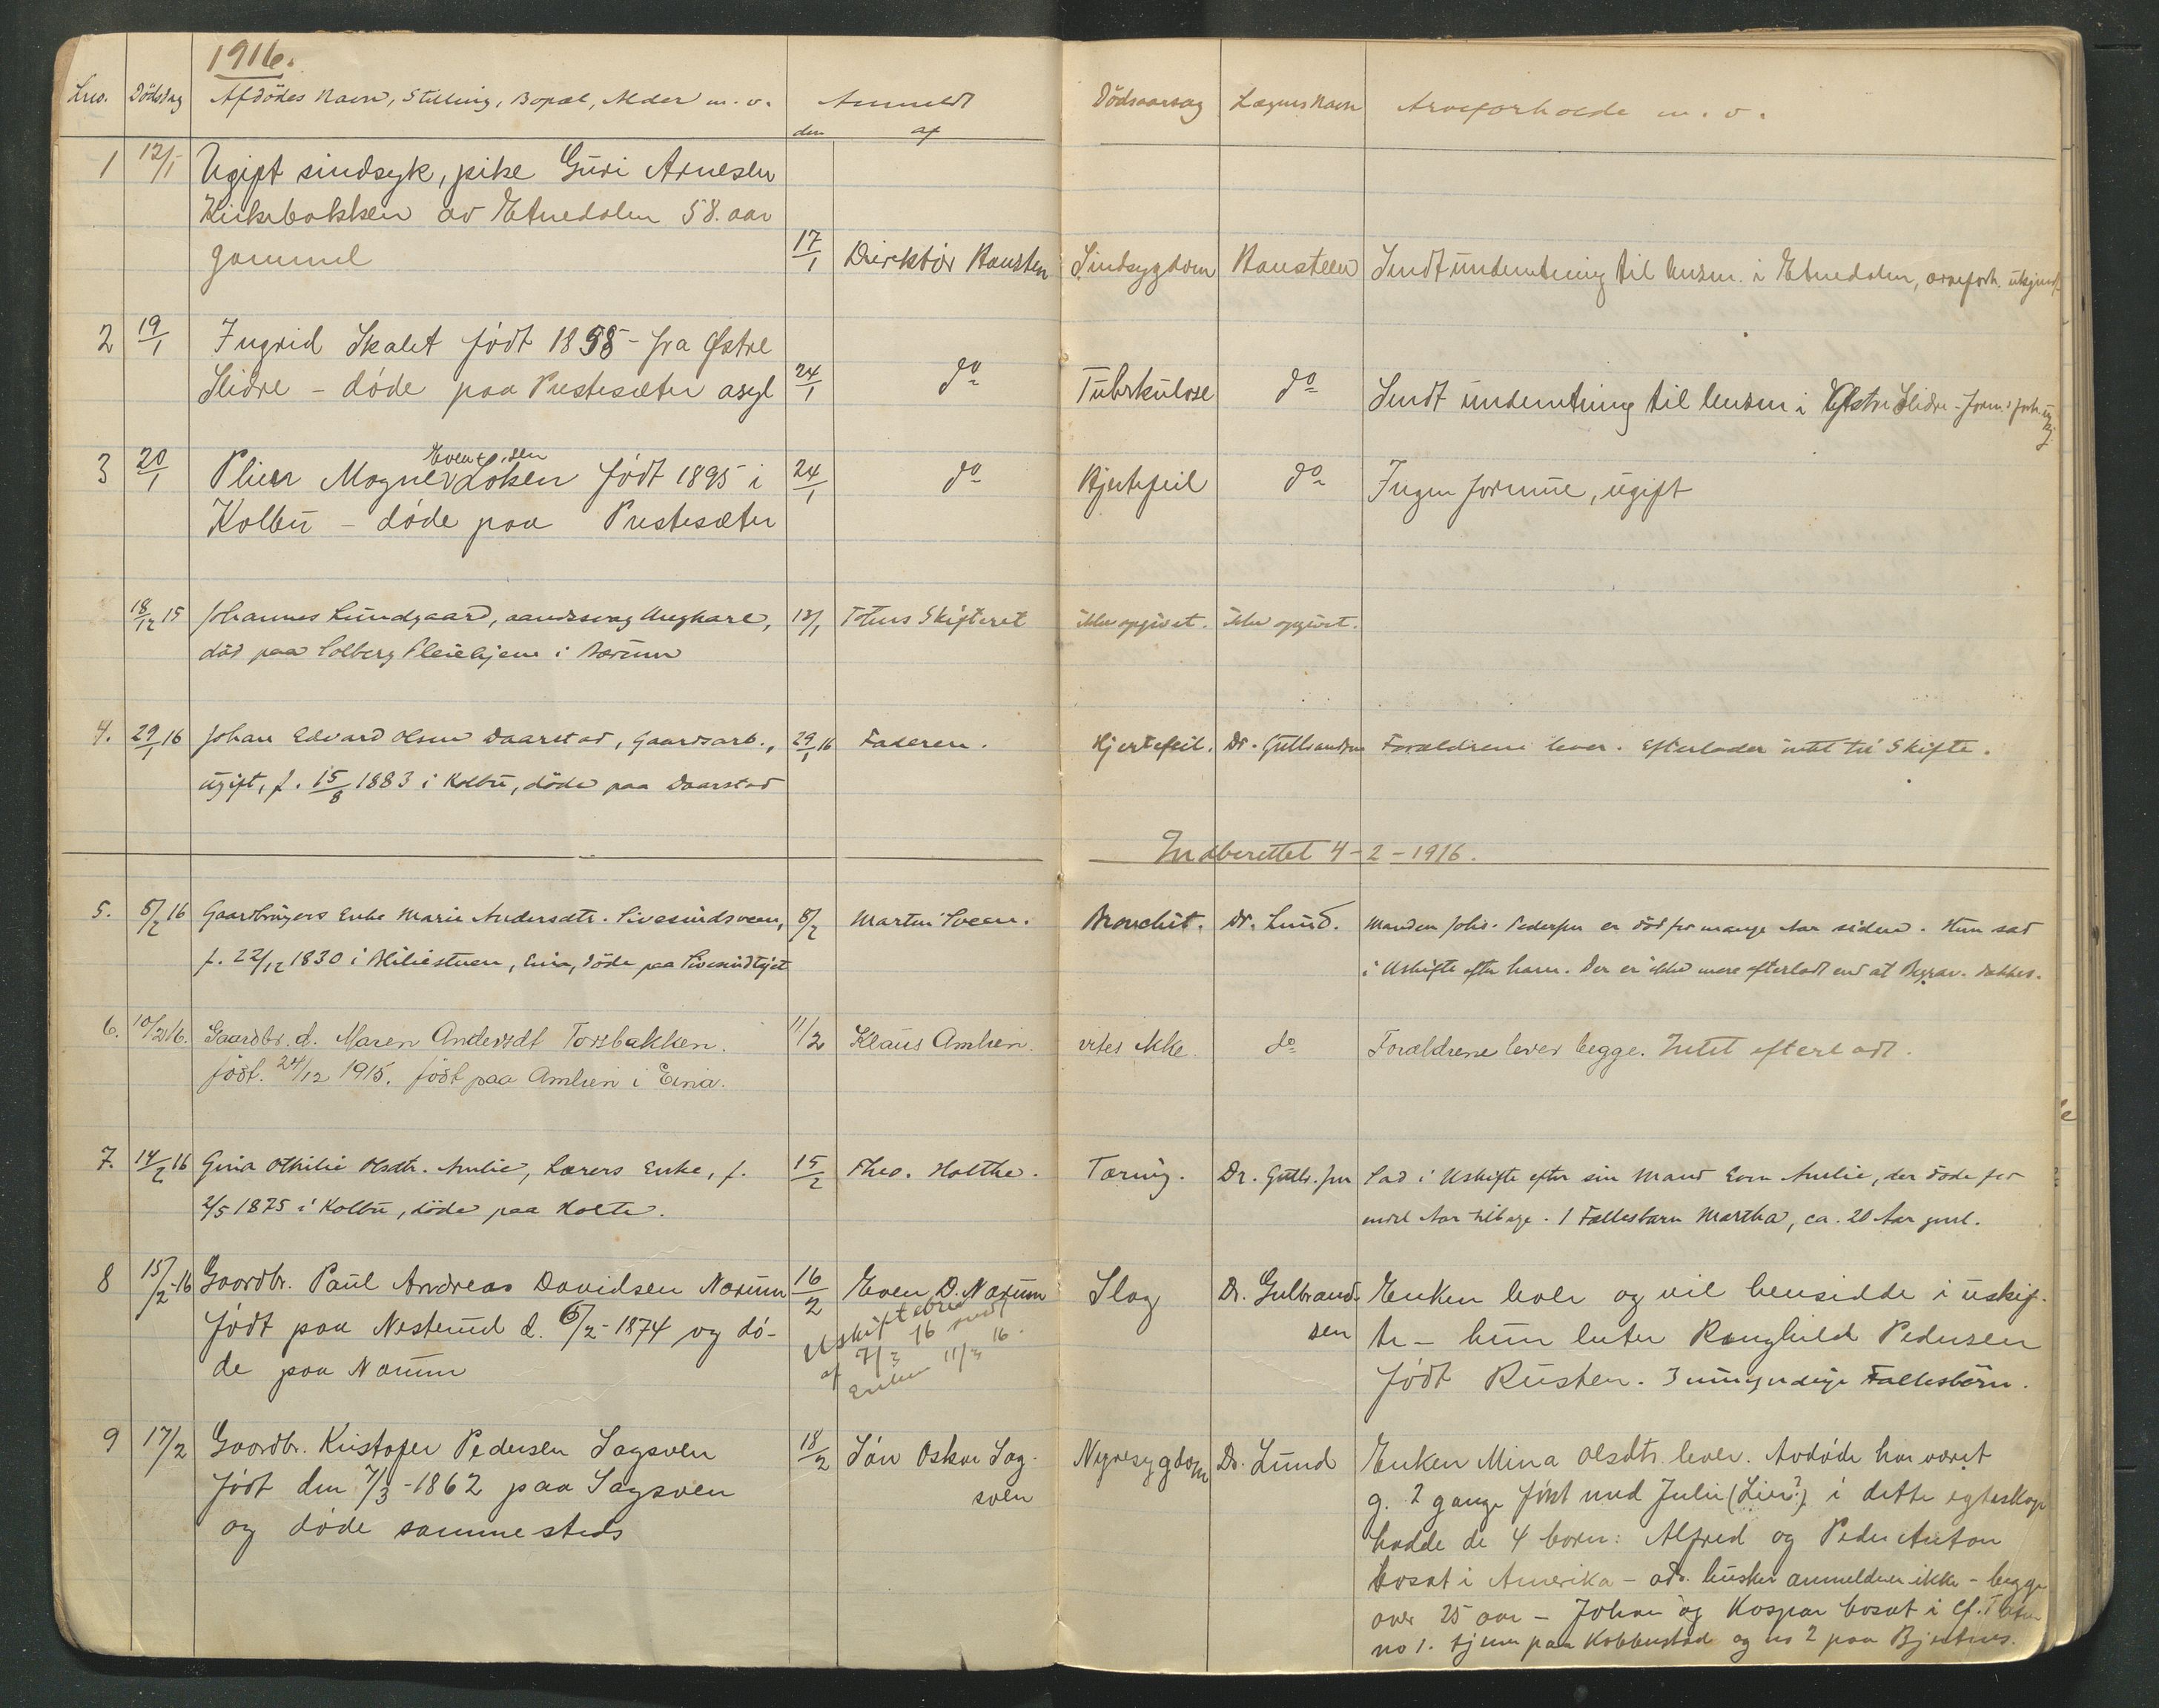 1916.
Lno. Dödsdag Afdödes Navn, Stilling, Bopæl, Alder m. v. Anmeldt Dödsaarsag Lægens Navn Arveforholde m. v.
den af
1 12/1 Ugift sindsyk, pike Guri Arnesen
Kirkebakken av Etnedalen 58. aar
gammel 17/1 Direktör Hansteen Sindsygdom Hansteen Sendt underretning til lensm. i Etnedalen, arveforh. ukjendt
2 19/1 Ingrid Skalet födt 1898 - fra Østre
Slidre - döde paa Prestesæter asyl 24/1 do Tuberkulose do Sendt underretning til lensm i Østre Slidre - form. forh.
Evensen
3 20/1 Magner Loken födt 1895 i 24/1 do Hjertefeil do Ingen formue, ugift
Kolbu - döde paa Prestesæter
18/12 15 Johannes Lundgaard, aandssvag Ungkarl, 13/1 Totens Skifteret ikke opgivet. ikke opgivet.
död paa Solberg Pleiehjem i Bærum
4. 29/1 16 Johan Edvard Olsen Daarstad, Gaardsarb., 29/1 16 Faderen. Hjertefeil. Dr. Gulbrandsen Forældrene lever. Efterlader intet til Skifte.
ugift, f. 15/8 1883 i Kolbu, döde paa Daarstad
Indberettet 4-2-1916.
5. 5/2 16 Gaardbrugers Enke Marie Andersdtr. Sivesindsveen, 8/2 Martin Sveen. Bronchit. Dr. Lund. Manden Johs. Pedersen er död for mange Aar siden. Hun sad
f. 22/12 1830 i Eina, döde paa i Uskifte efter ham. Der er ikke mere efterladt end at Begrav. dækkes.
6. 10/2 16. Gaardbr. d. Maren Andersdt Torsbakken. 11/2 Klaus Amlien. vites ikke. do Forældrene lever begge. Intet efterladt.
födt. 24/12 1915. födt paa Amlien i Eina.
7. 14/2 16 Gina Othilie Olsdtr. Amlie, Lærers Enke, f. 15/2 Theo. Holthe. Tæring. Dr. Gulb.sen Sad i Uskifte efter sin Mand Even Amlie, der döde for
2/5 1875 i Kolbu, döde paa Holte. endel Aar tilbage. 1 Fællesbarn Martha, ca. 20 Aar gml.
8 15/2-16 Gaardbr. Paul Andreas Davidsen Narum 16/2 Even D. Narum Slag Dr. Gulbrand- Enken lever og vil hensidde i uskif-
födt paa Nesterud d. 6/2-1874 og dö- Uskiftebrev sen te - hun heter Ranghild Pedersen
de paa Narum af 7/3 16 sendt födt Rusten. 3 umyndige Fællesbörn.
Enken 11/3 16.
9 17/2 Gaardbr. Kristofer Pedersen Sagsveen 18/2 Sön Oskar Sag- Nyresygdom Dr. Lund Enken Mina Olsdtr. lever. Avdöde har været
födt den 7/3-1862 paa Sagsveen sveen g. 2 gange först med Julie (Lien?) i dette egteskap
og döde sammesteds hadde de 4 barn: Alfred og Peder Anton
bosat i Amerika - adr. husker anmelderen ikke - begge
over 25 aar - Johan og Kaspar bosat i Ø. Toten
no 1. tjener paa Kobberstad og no 2 paa Bjertnes.